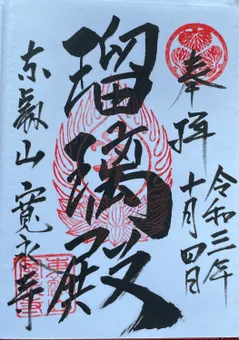 奉拝
令和三年
十月四日
瑠璃殿
東叡山 寛永寺